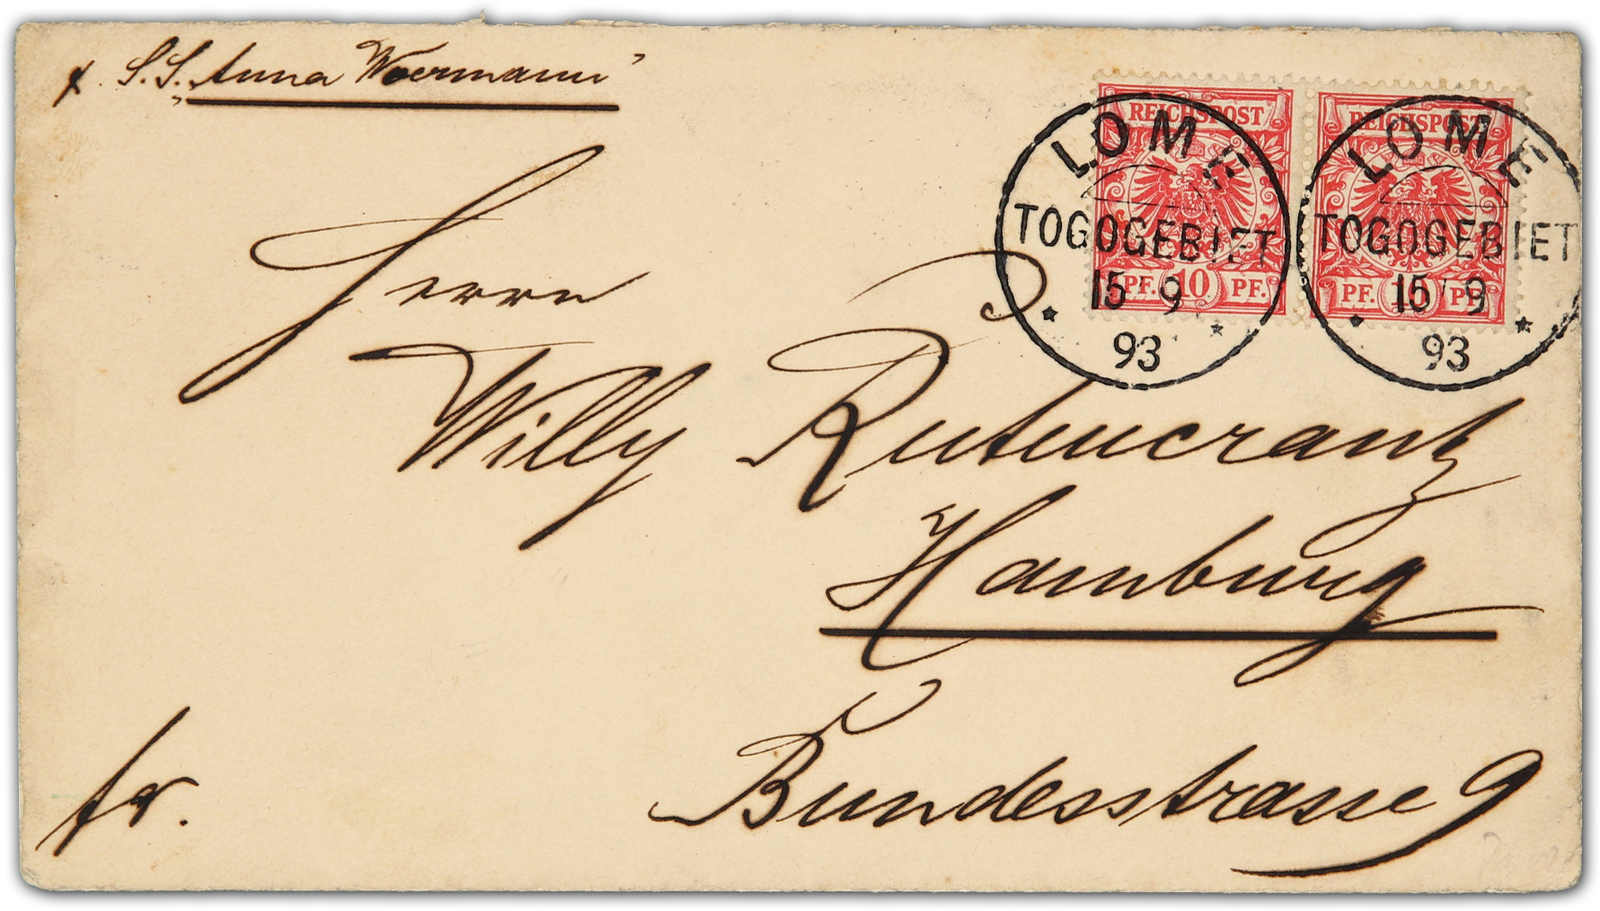 p. S.S. „Anna Woermann"
REICHSPOST
REICHSPOST
LOME
TOGOGEBIET
15 9
93
LOME
TOGOGEBIET
15 9
93
PF. 10 PF.
PF. PF.
Herrn
Willy Rutencrantz
Hamburg
fr.
Bundesstrasse 9